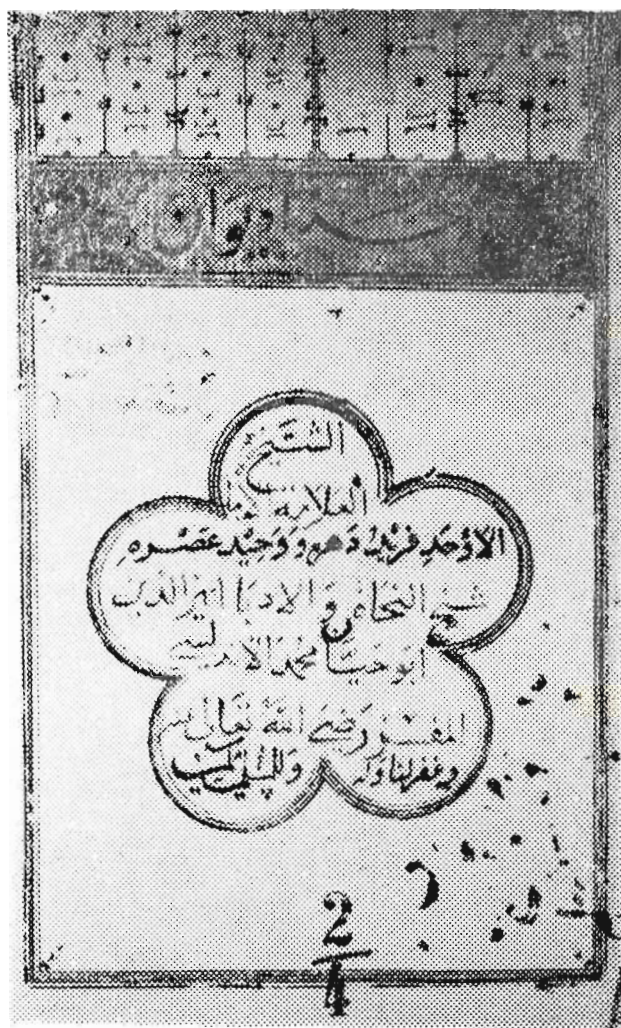 ديوان
الشيخ
العلامة
الاوحد فريد دهره ووحيد عصره
شيخ النحاة والادبا اثير الدين
ابو حيان محمد الاندلسي
المفسر رضي الله تعالى عنه
وغفر لنا وله وللمسلمين
2
4